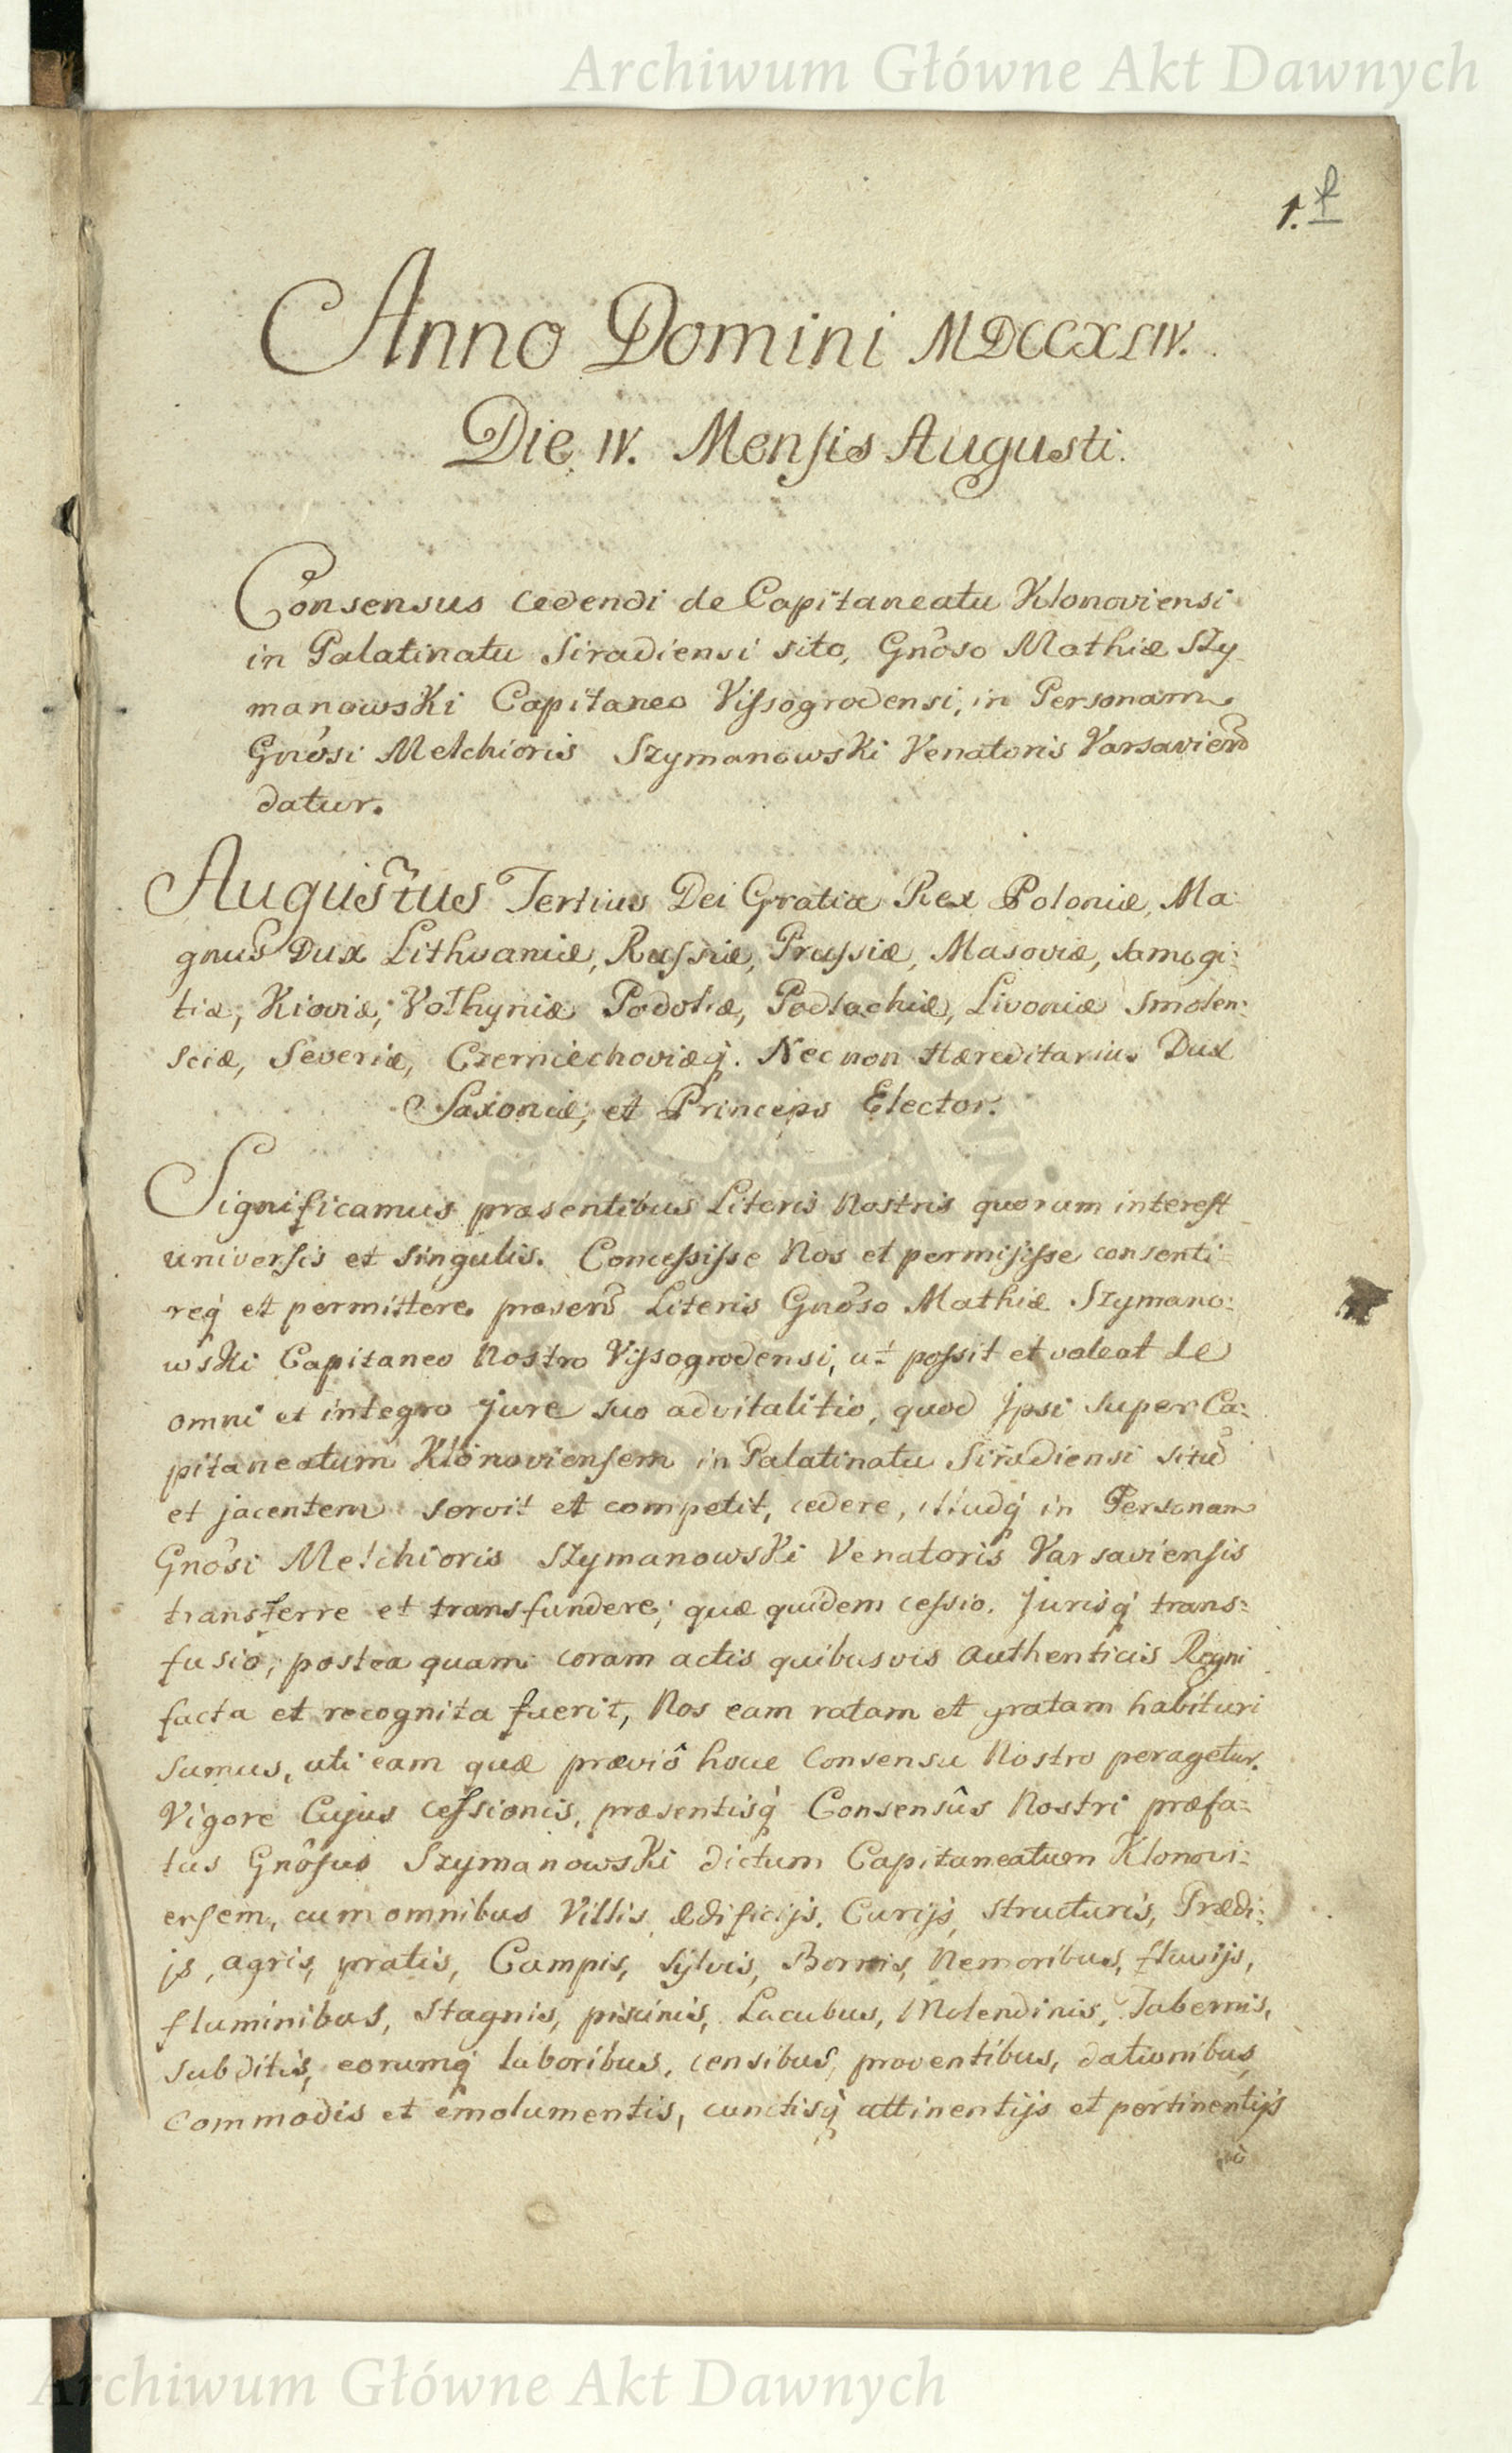 Archiwum Główne Akt Dawnych
1.
Anno Domini MDCCXLIV.
Die IV. Mensis Augusti.
Consensus cedendi de Capitaneatu Klonoviensi
in Palatinatu Siradiensi sito, Gnôso Mathiæ Szy-
manowski Capitaneo Vissogrodensi, in Personam
Gnôsi Melchioris Szymanowski Venatoris Varsavien̄
datur.
Augustus Tertius Dei Gratia Rex Poloniæ, Ma:
gnus Dux Lithvaniæ, Russiæ, Prussiæ, Masoviæ, Samogi:
tiæ, Kioviæ, Volhyniæ Podoliæ, Podlachiæ, Livoniæ Smolen:
sciæ, Severiæ, Czerniechoviæq́. Nec non Hæreditarius Dux
Saxoniæ, et Princeps Elector.
Significamus præsentibus Literis Nostris quorum interest
universis et singulis. Concessisse Nos et permisisse consenti:
req́ et permittere præsen̄ Literis Gnôso Mathiæ Szymano:
wski Capitaneo Nostro Vissogrodensi, ut possit et valeat de
omni et integro Jure suo advitalitio, quod Ipsi super Ca:
pitaneatum Klonoviensem in Palatinatu Siradiensi sitū
et jacentem servit et competit, cedere, illudq́ in Personam
Gnôsi Melchioris Szymanowski Venatoris Varsaviensis
transferre et transfundere; quæ quidem cessio, Jurisq́ trans:
fusio, postea quam coram actis quibusvis authenticis Regni
facta et recognita fuerit, Nos eam ratam et gratam habituri
sumus, uti eam quæ præviô hocce Consensu Nostro peragetur.
Vigore Cujus cessionis, præsentisq́ Consensûs Nostri præfa:
tus Gnôsus Szymanowski dictum Capitaneatum Klonovi:
ensem, cum omnibus Villis, ædificijs, Curijs, structuris, Prædi:
js, agris, pratis, Campis, Sylvis, Borris, Nemoribus, fluvijs,
fluminibus, Stagnis, piscinis, Lacubus, Molendinis, Tabernis,
subditis, eorumq́ laboribus, censibus, proventibus, dationibus,
commodis et emolumentis, cunctisq́ attinentijs et pertinentijs
Archiwum Główne Akt Dawnych